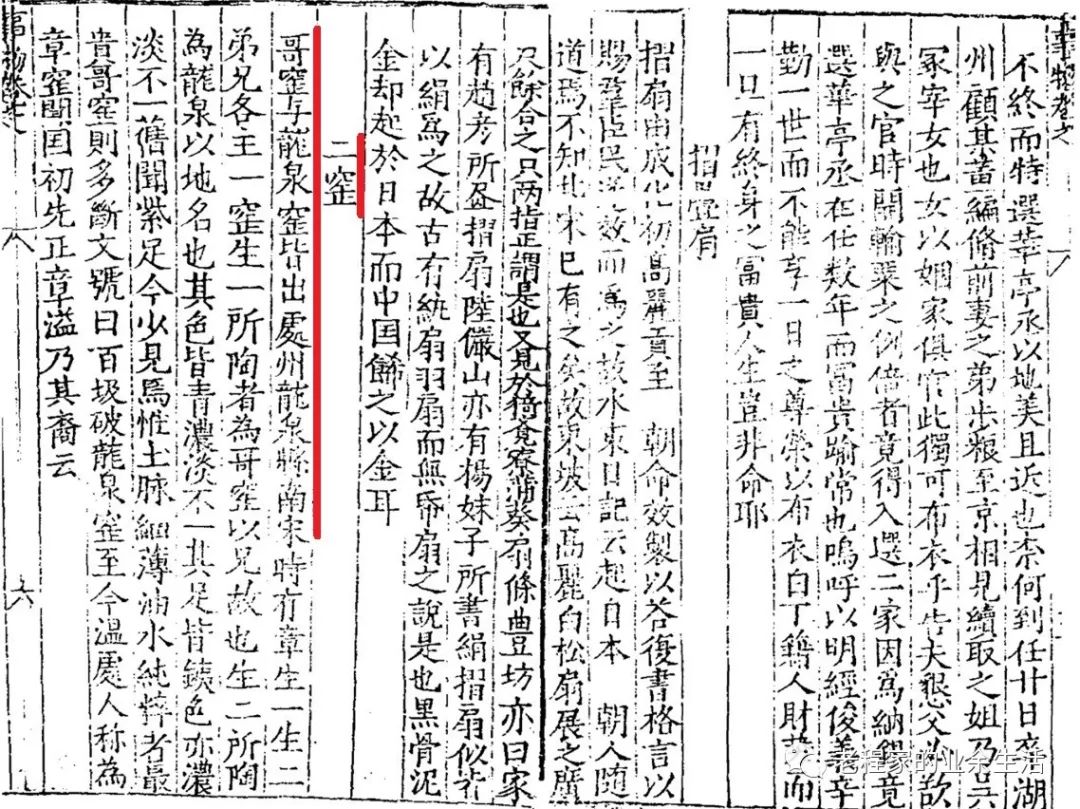 事物卷之
不終而特選華亭丞以地美且近也柰何到任廿日卒湖
州顧其蓄編脩前妻之弟步粮至京相見續取之姐乃
冢宰女也女以姻家俱官此獨可布衣乎告夫懇父
與之官時開輸粟之例借者竟得入選二家因爲納銀竟
選華亭丞在任数年而冨贵踰常也嗚呼以明經後義辛
勤一世而不能享一日之尊榮以布衣白丁籍人財勢而
一旦有終身之富貴人生豈非命耶
摺疊扇
摺扇由成化初髙麗貢至 朝命效製以荅復書格言以
賜羣臣民遂效而爲之故水東日記云起日本 朝人随
道焉不知北宋已有之矣故東坡云髙麗白松扇展之廣
尺餘合之只两指正謂是也又見於倚竟寮蒲葵扇條豊坊亦曰家
有趙彦所画摺扇陸儼山亦有楊妹子所書絹摺扇似皆
以絹爲之故古有紈扇羽扇而無帋扇之說是也黒骨泥
金却起於日本而中国餙之以金耳
二窑
哥窑与龍泉窑皆出處州龍泉縣南宋時有章生一生二
弟兄各主一窑生一所陶者為哥窑以兄故也生二所陶
為龍泉以地名也其色皆青濃淡不一其足皆鉄色亦濃
淡不一舊聞紫足今少見焉惟土脉細薄油水純粹者最
貴哥窑則多斷文號曰百圾破龍泉窑至今温處人称為
章窑聞国初先正章溢乃其裔云
事物卷之
八
六
老程家的业余生活